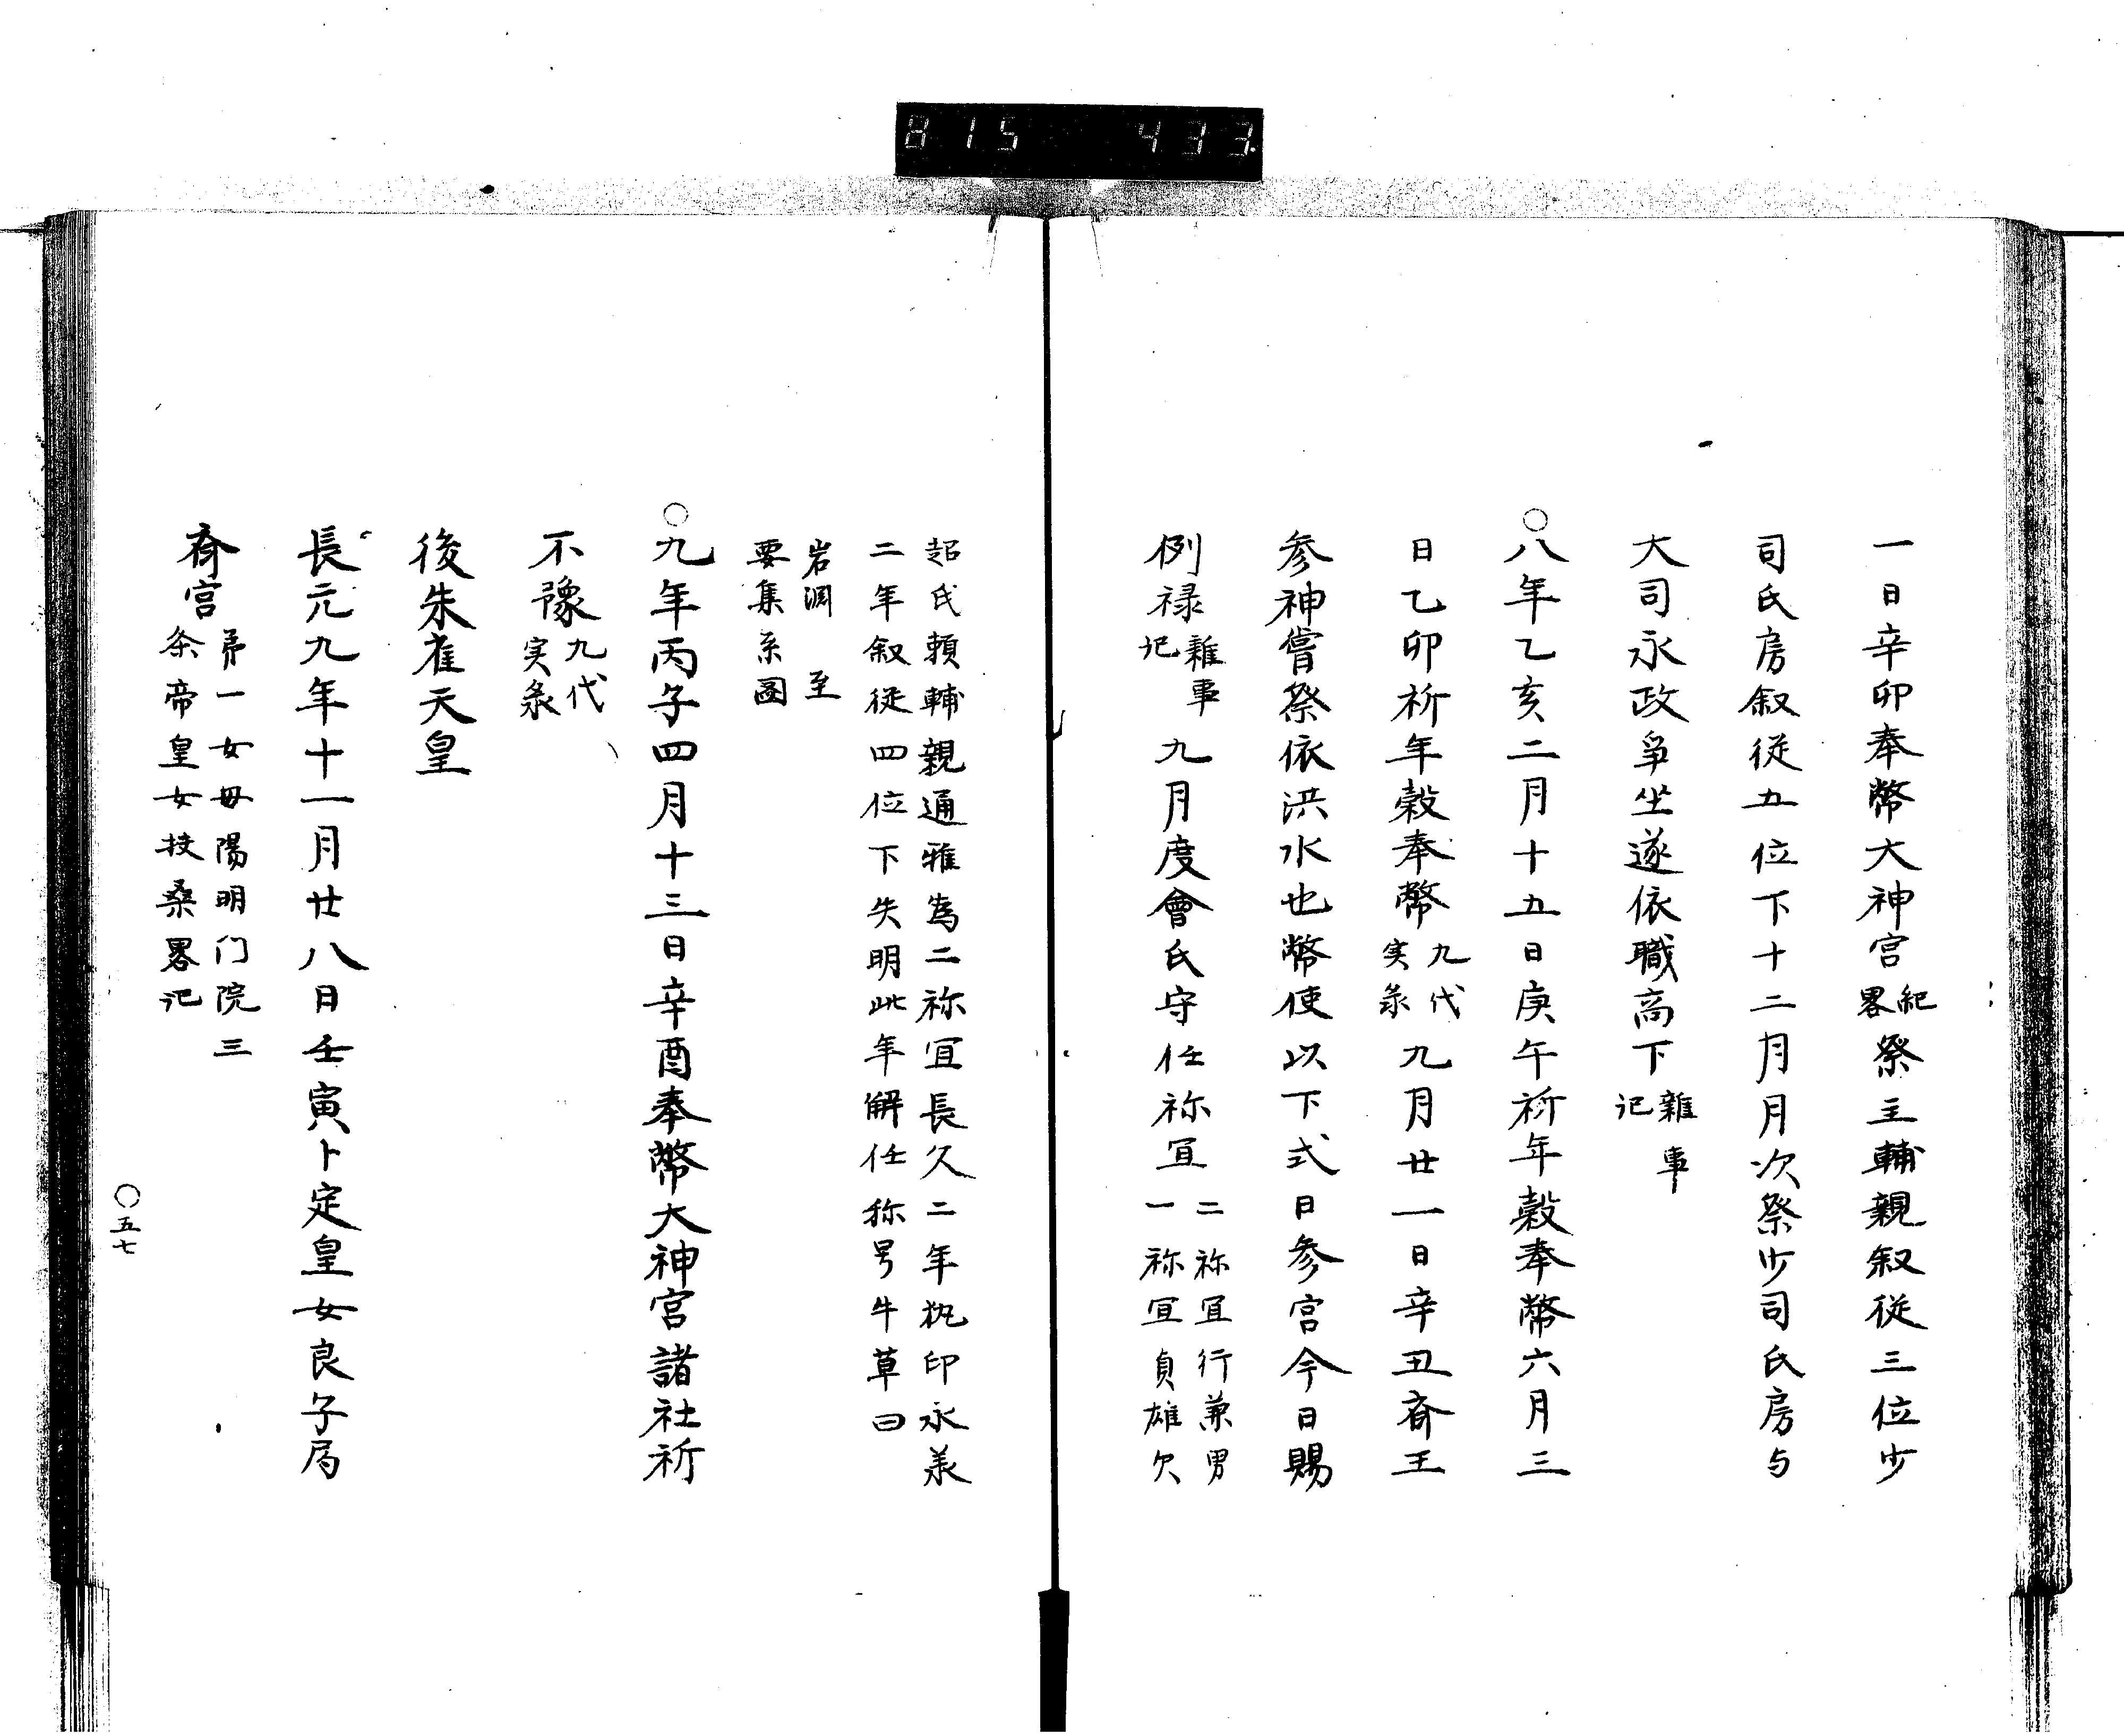 815 433
一日辛卯奉幣大神宮紀畧祭主輔親叙従三位少
司氏房叙従五位下十二月月次祭少司氏房与
大司永政爭坐遂依職高下雜事記
○八年乙亥二月十五日庚午祈年穀奉幣六月三
日乙卯祈年穀奉幣九代実彔九月廿一日辛丑斎王
参神嘗祭依洪水也幣使以下式日参宮今日賜
例禄雜事記九月度會氏守任祢宜二祢宜行兼男一祢宜貞雄欠
起氏頼輔親通雅為二祢宜長久二年執印永義
二年叙従四位下失明此年解任称号牛草曰
岩渊至
要集系圖
○九年丙子四月十三日辛酉奉幣大神宮諸社祈
不豫九代実彔
後朱雀天皇
長元九年十一月廿八日壬寅卜定皇女良子為
斎宮第一女母陽明门院三条帝皇女扶桑畧記
○五七